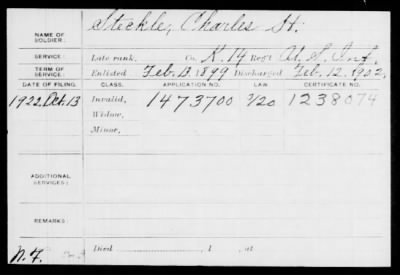 NAME OF SOLDIER: Steckle, Charles St.
SERVICE: Late rank, Co. K. 14 Reg't U. S. Inf.
TERM OF SERVICE: Enlisted Feb. 13. 1899 Discharged Feb. 12. 1902.
DATE OF FILING. CLASS. APPLICATION NO. LAW CERTIFICATE NO.
1922. Oct. 13 Invalid, 1473700 1238074
Widow,
Minor,
ADDITIONAL SERVICES:
REMARKS:
Died , 1 , at